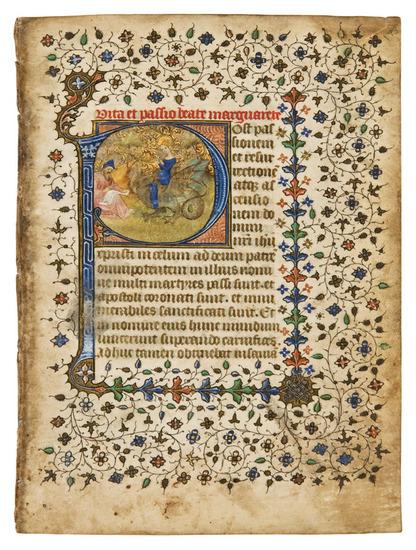 Vita et passio beate margarete
Post pas
sionem
et resur
rectione
atqz as
censio
nem do
mini
nri ihu
xpisti in celum ad deum patre
omnipotentem in illius nomi
ne multi martyres passi sunt et
apostoli coronati sunt. et innu
merabiles sanctificati sunt. Et
in nomine eius hunc mundum
vicerunt superando carnifices
adhuc tamen obtinebat insania